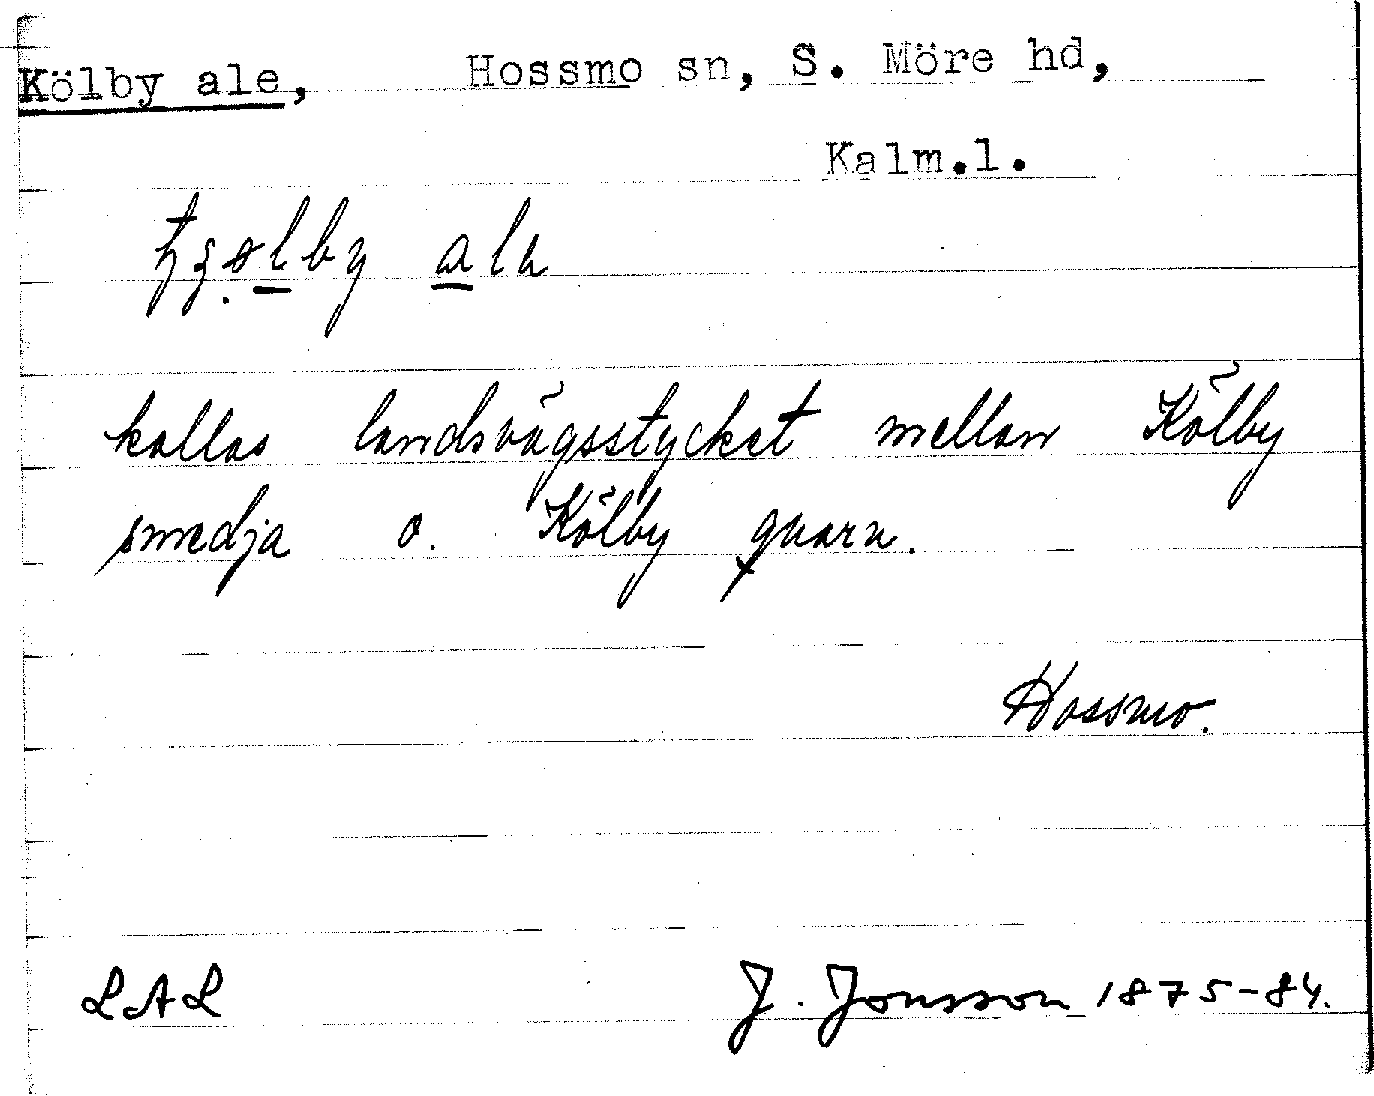 Kölby ale, Hossmo sn, S. Möre hd,
Kalm.l.
kallas landsvägsstycket mellan Kölby
smedja o. Kölby qvarn.
Hossmo.
LAL J. Jonsson 1875-84.